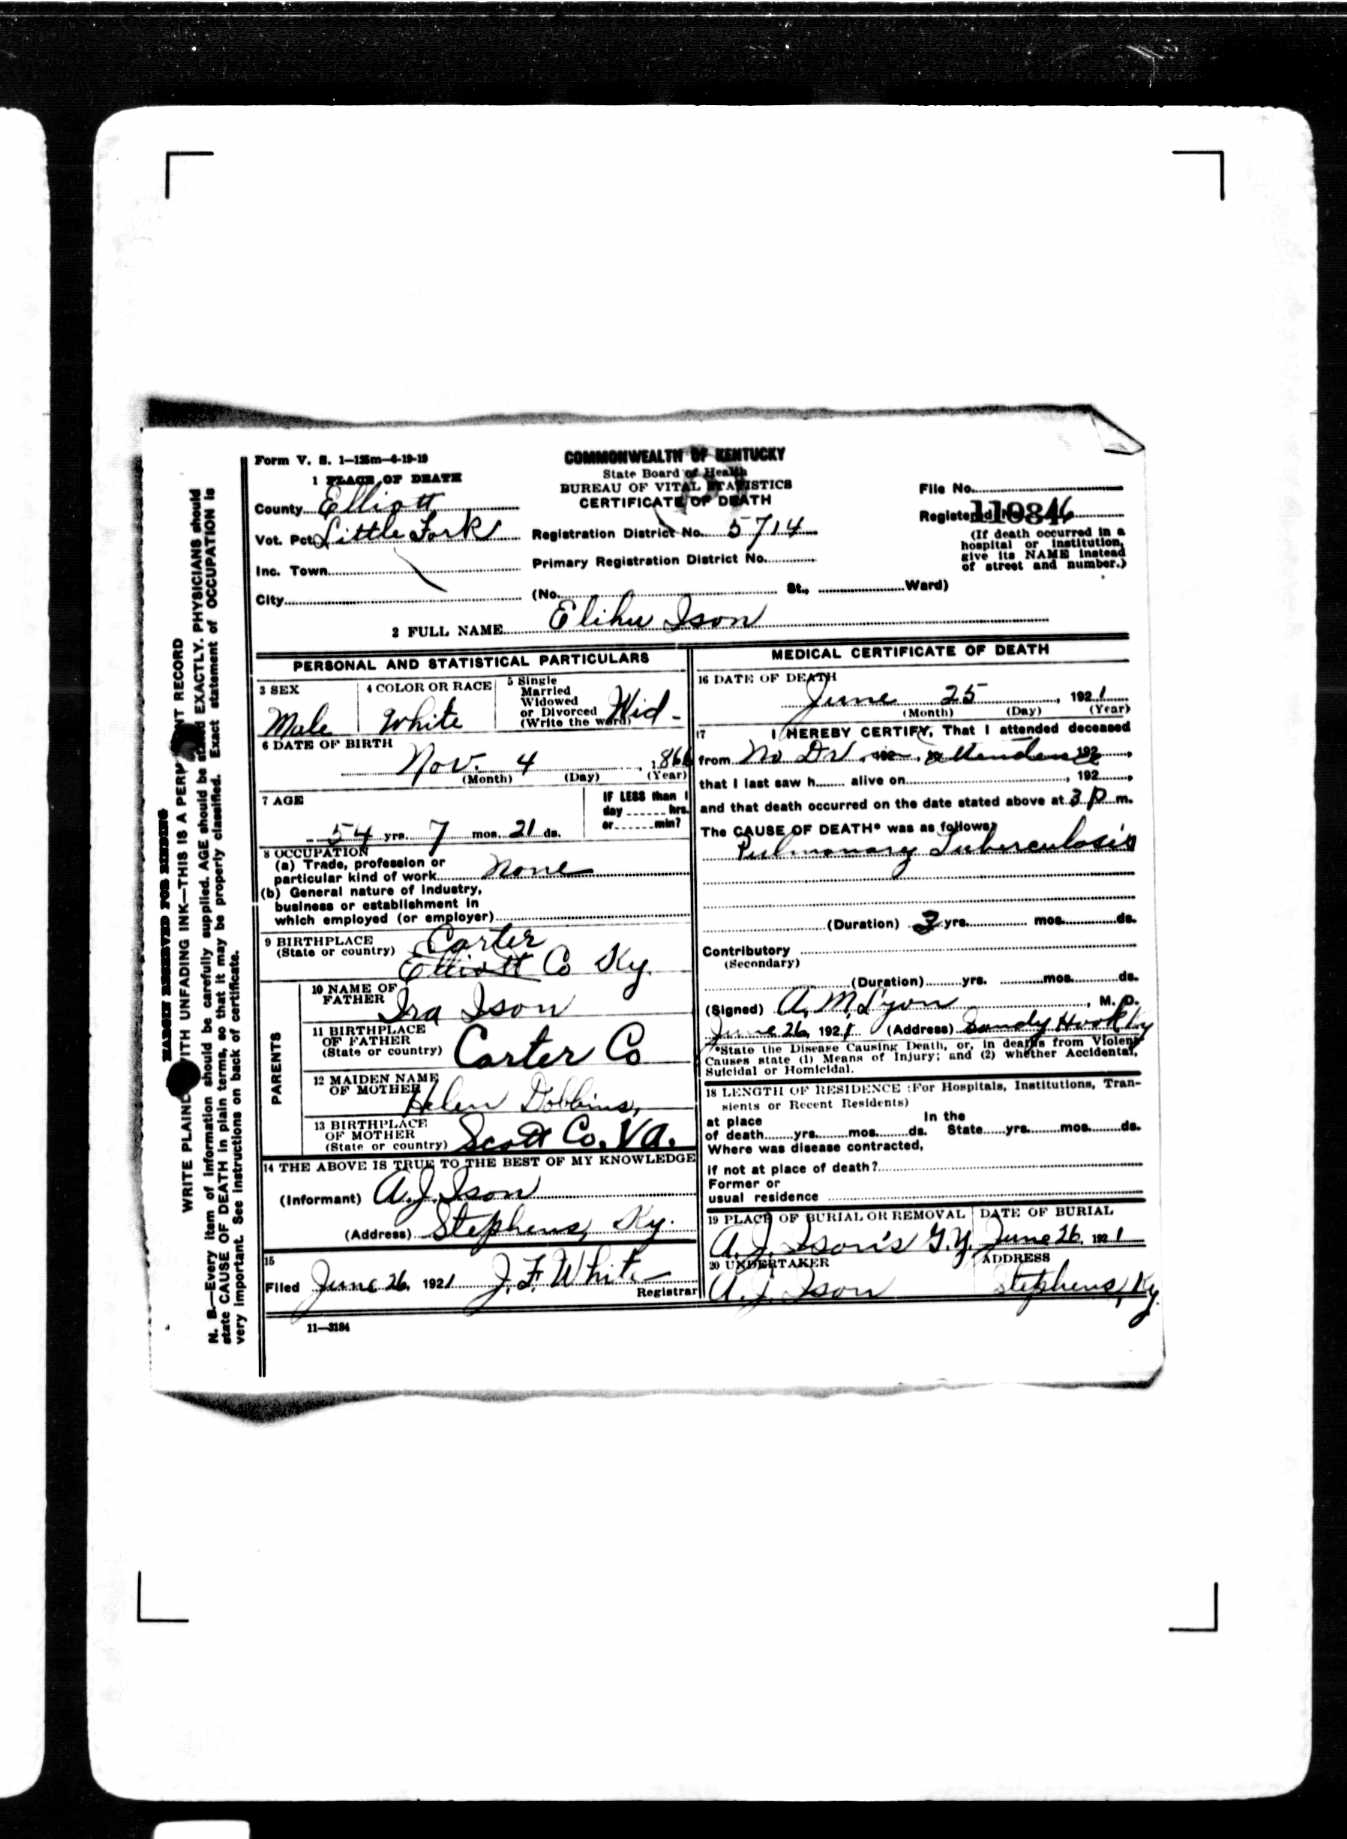 Form V. S. 1—125m—4-19-19
COMMONWEALTH OF KENTUCKY
State Board of Health
BUREAU OF VITAL STATISTICS
CERTIFICATE OF DEATH
1 PLACE OF DEATH
County Elliott
Vot. Pct. Little Fork
Inc. Town
City
Registration District No. 5714
Primary Registration District No.
(No. St., Ward)
File No.
Registered No. 11084
(If death occurred in a
hospital or institution,
give its NAME instead
of street and number.)
2 FULL NAME Elihu Ison
PERSONAL AND STATISTICAL PARTICULARS
3 SEX
Male
4 COLOR OR RACE
White
5 Single
Married
Widowed
or Divorced
(Write the word)
Wid-
6 DATE OF BIRTH
Nov. 4, 1866
(Month) (Day) (Year)
7 AGE
54 yrs. 7 mos. 21 ds.
IF LESS than 1
day hrs.
or min?
8 OCCUPATION
(a) Trade, profession or
particular kind of work None
(b) General nature of industry,
business or establishment in
which employed (or employer)
9 BIRTHPLACE
(State or country)
Carter
Elliott Co Ky.
PARENTS
10 NAME OF
FATHER
Ira Ison
11 BIRTHPLACE
OF FATHER
(State or country)
Carter Co
12 MAIDEN NAME
OF MOTHER
Helen Dobbins,
13 BIRTHPLACE
OF MOTHER
(State or country)
Scott Co. Va.
14 THE ABOVE IS TRUE TO THE BEST OF MY KNOWLEDGE
(Informant) A. J. Ison
(Address) Stephens, Ky.
15
Filed June 26, 1921 J. F. White
Registrar
11—3184
MEDICAL CERTIFICATE OF DEATH
16 DATE OF DEATH
June 25, 1921
(Month) (Day) (Year)
17 I HEREBY CERTIFY, That I attended deceased
from No Dr. in attendence 192
that I last saw h alive on , 192
and that death occurred on the date stated above at 3 P m.
The CAUSE OF DEATH* was as follows:
Pulmonary Tuberculosis
(Duration) 3 yrs. mos. ds.
Contributory
(Secondary)
(Duration) yrs. mos. ds.
(Signed) A. M. Lyon, M. D.
June 26, 1921 (Address) Sandy Hook Ky
*State the Disease Causing Death, or, in deaths from Violent
Causes state (1) Means of Injury; and (2) whether Accidental,
Suicidal or Homicidal.
18 LENGTH OF RESIDENCE (For Hospitals, Institutions, Tran-
sients or Recent Residents)
at place In the
of death yrs. mos. ds. State yrs. mos. ds.
Where was disease contracted,
if not at place of death?
Former or
usual residence
19 PLACE OF BURIAL OR REMOVAL
A. J. Ison's G. Y.
DATE OF BURIAL
June 26, 1921
20 UNDERTAKER
A. J. Ison
ADDRESS
Stephens, Ky.
MARGIN RESERVED FOR BINDING
WRITE PLAINLY WITH UNFADING INK—THIS IS A PERMANENT RECORD
N. B.—Every item of information should be carefully supplied. AGE should be stated EXACTLY. PHYSICIANS should
state CAUSE OF DEATH in plain terms, so that it may be properly classified. Exact statement of OCCUPATION is
very important. See instructions on back of certificate.